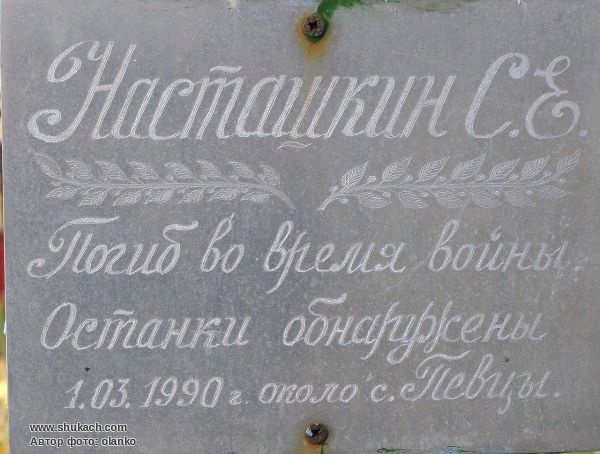 Насташкин С.Е.
Погиб во время войны.
Останки обнаружены
1.03.1990 г. около с. Певцы.
www.shukach.com
Автор фото: olanko